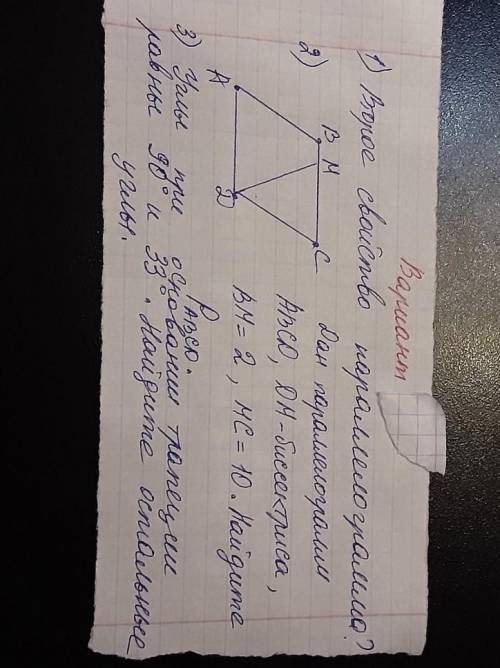 Вариант
1) Второе свойство параллелограмма?
2)
B M C
A D
Дан параллелограмм
ABCD, DM-биссектриса,
BM = 2, MC = 10. Найдите
P ABCD.
3) Углы при основании трапеции
равны 90° и 33°. Найдите остальные
углы.